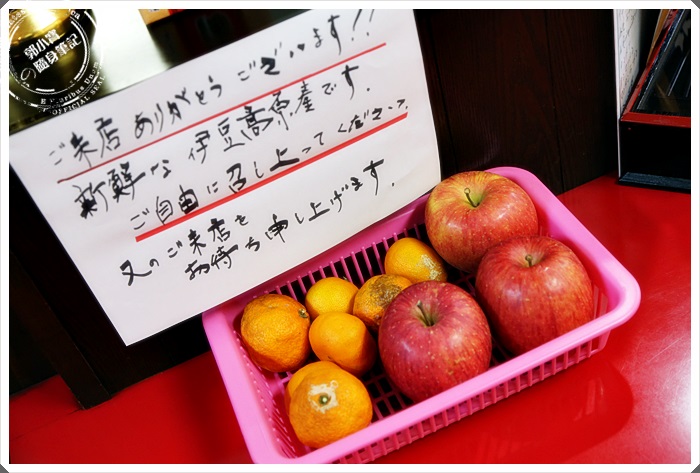 ご来店ありがとうございます!!
新鮮な伊豆高原産です.
ご自由に召し上ってください?.
又のご来店を
お待ち申し上げます.
郭小寶
の隨身筆記
OFFICIAL SEAL